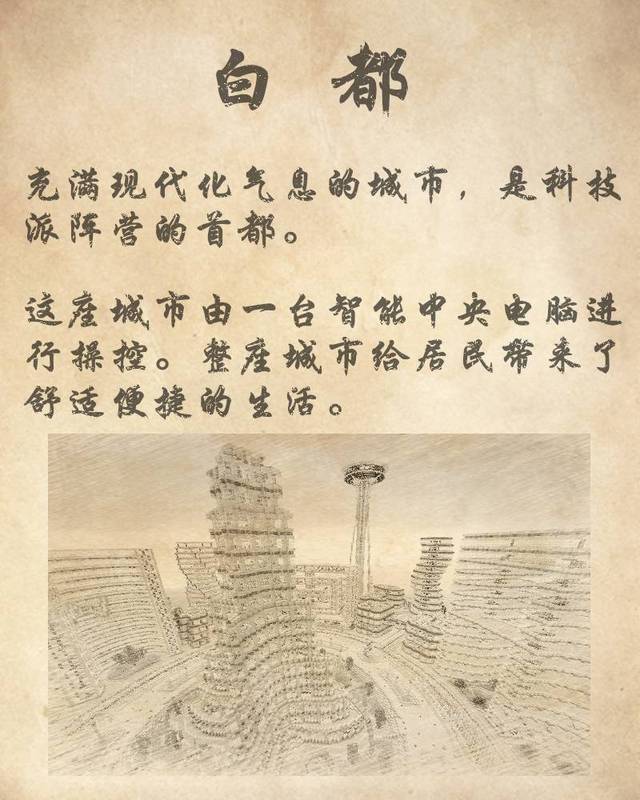 白 都
充满现代化气息的城市，是科技
派阵营的首都。
这座城市由一台智能中央电脑进
行操控。整座城市给居民带来了
舒适便捷的生活。